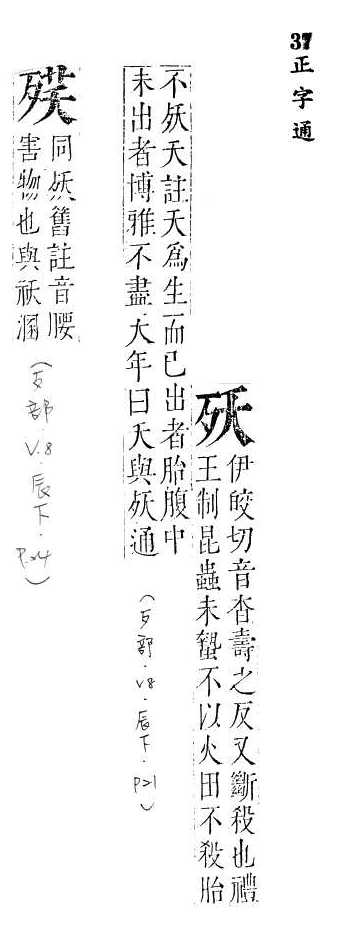 37 正字通
殀
伊皎切音杳壽之反又斷殺也禮
王制昆蟲未蟄不以火田不殺胎
不殀夭註夭爲生而已出者胎腹中
未出者博雅不盡大年曰夭與殀通
(歹部.v8.辰下.p21)
同殀舊註音腰
害物也與祅溷
(歹部.V.8.辰下.P.24)